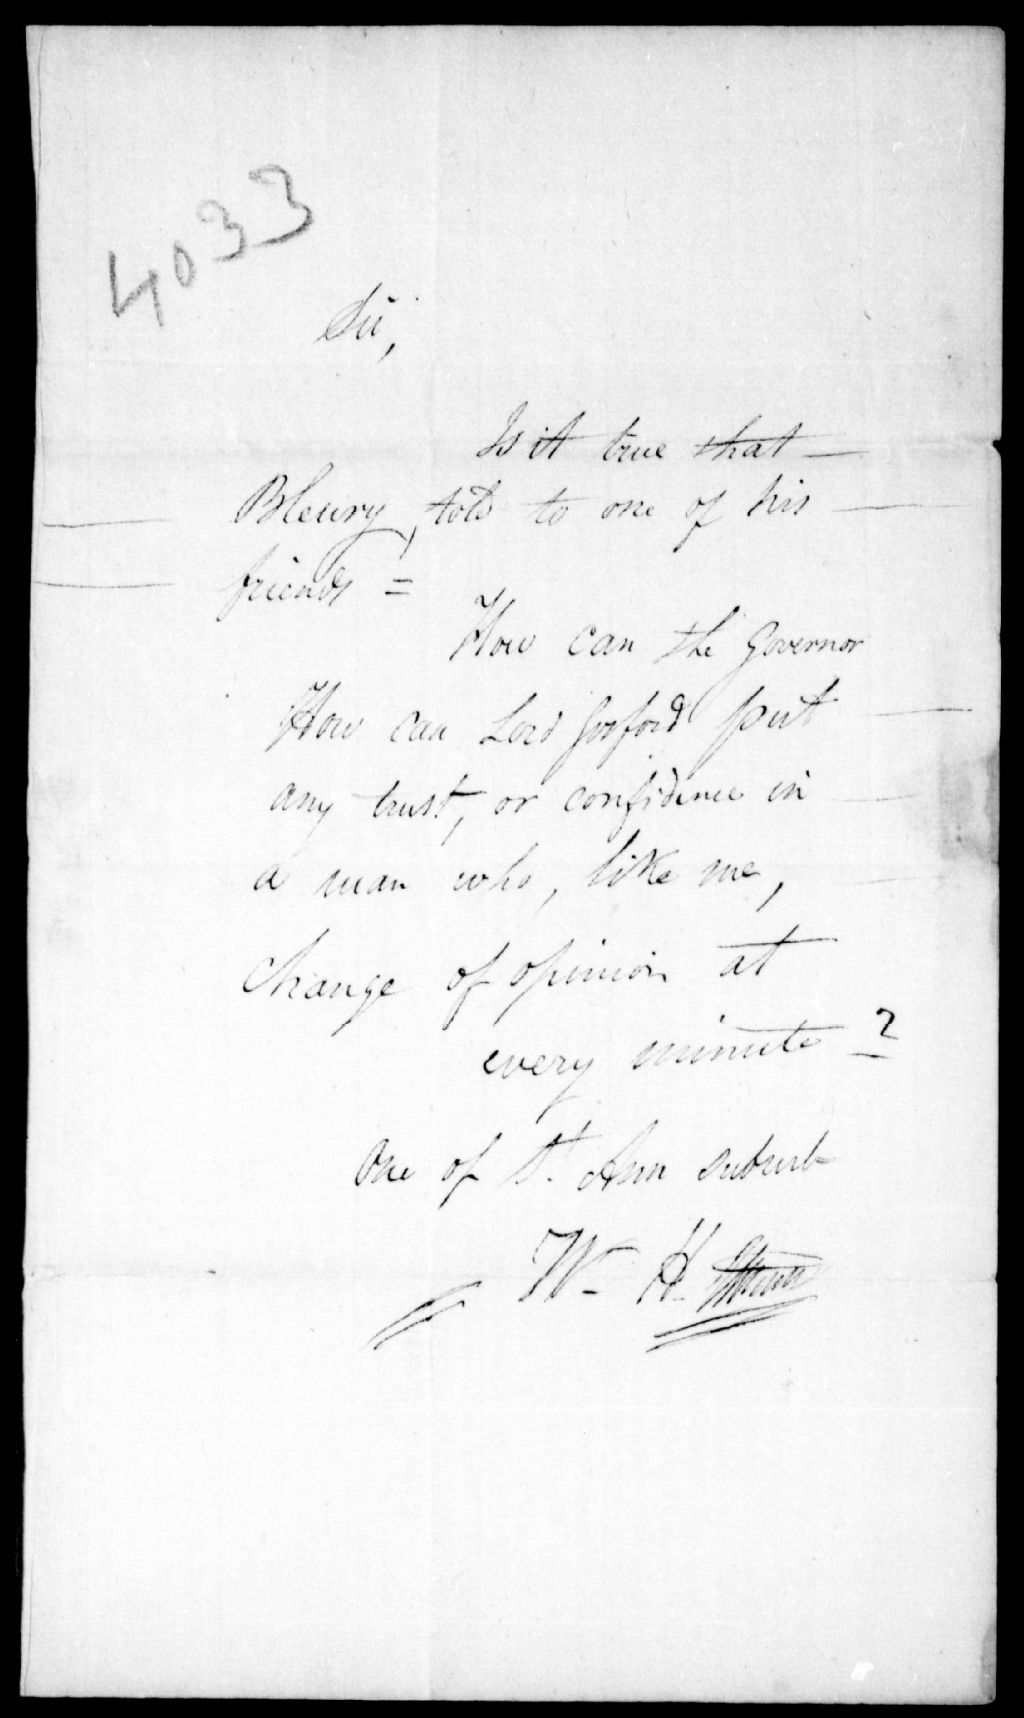 4033
Sir,
Is it true that —
Bleury, told to one of his —
friends =
How can the Governor
How can Lord Gosford put —
any trust, or confidence in —
a man who, like me, —
change of opinion at
every minute ?
One of St. Ann suburb
W. H.